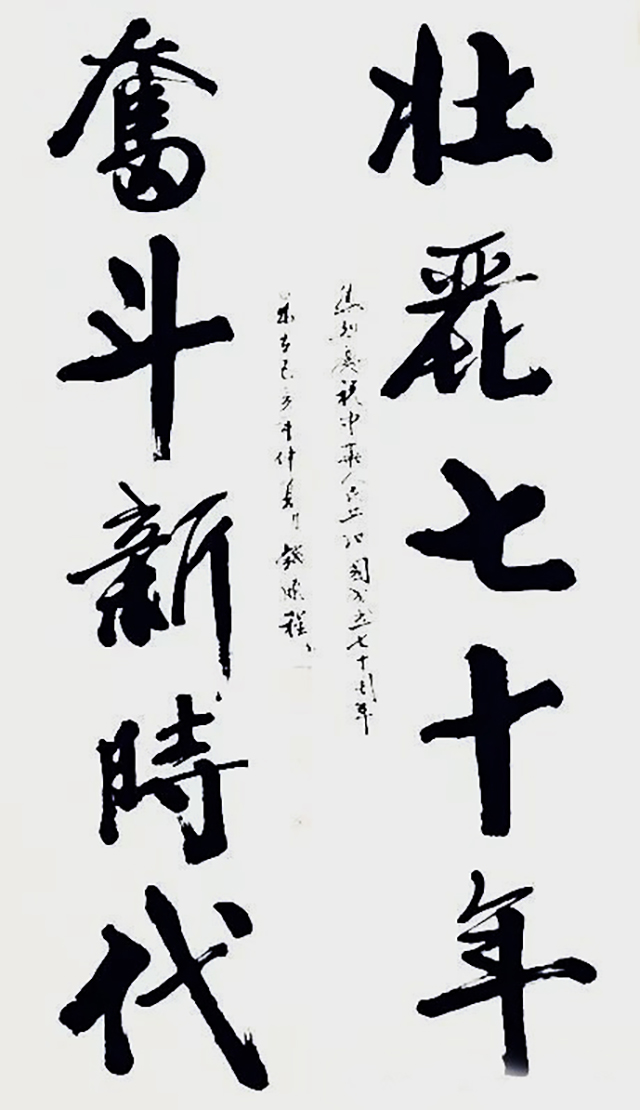 壮麗七十年
热烈庆祝中華人民共和國成立七十周年
奮斗新時代
歲在己亥年仲夏月